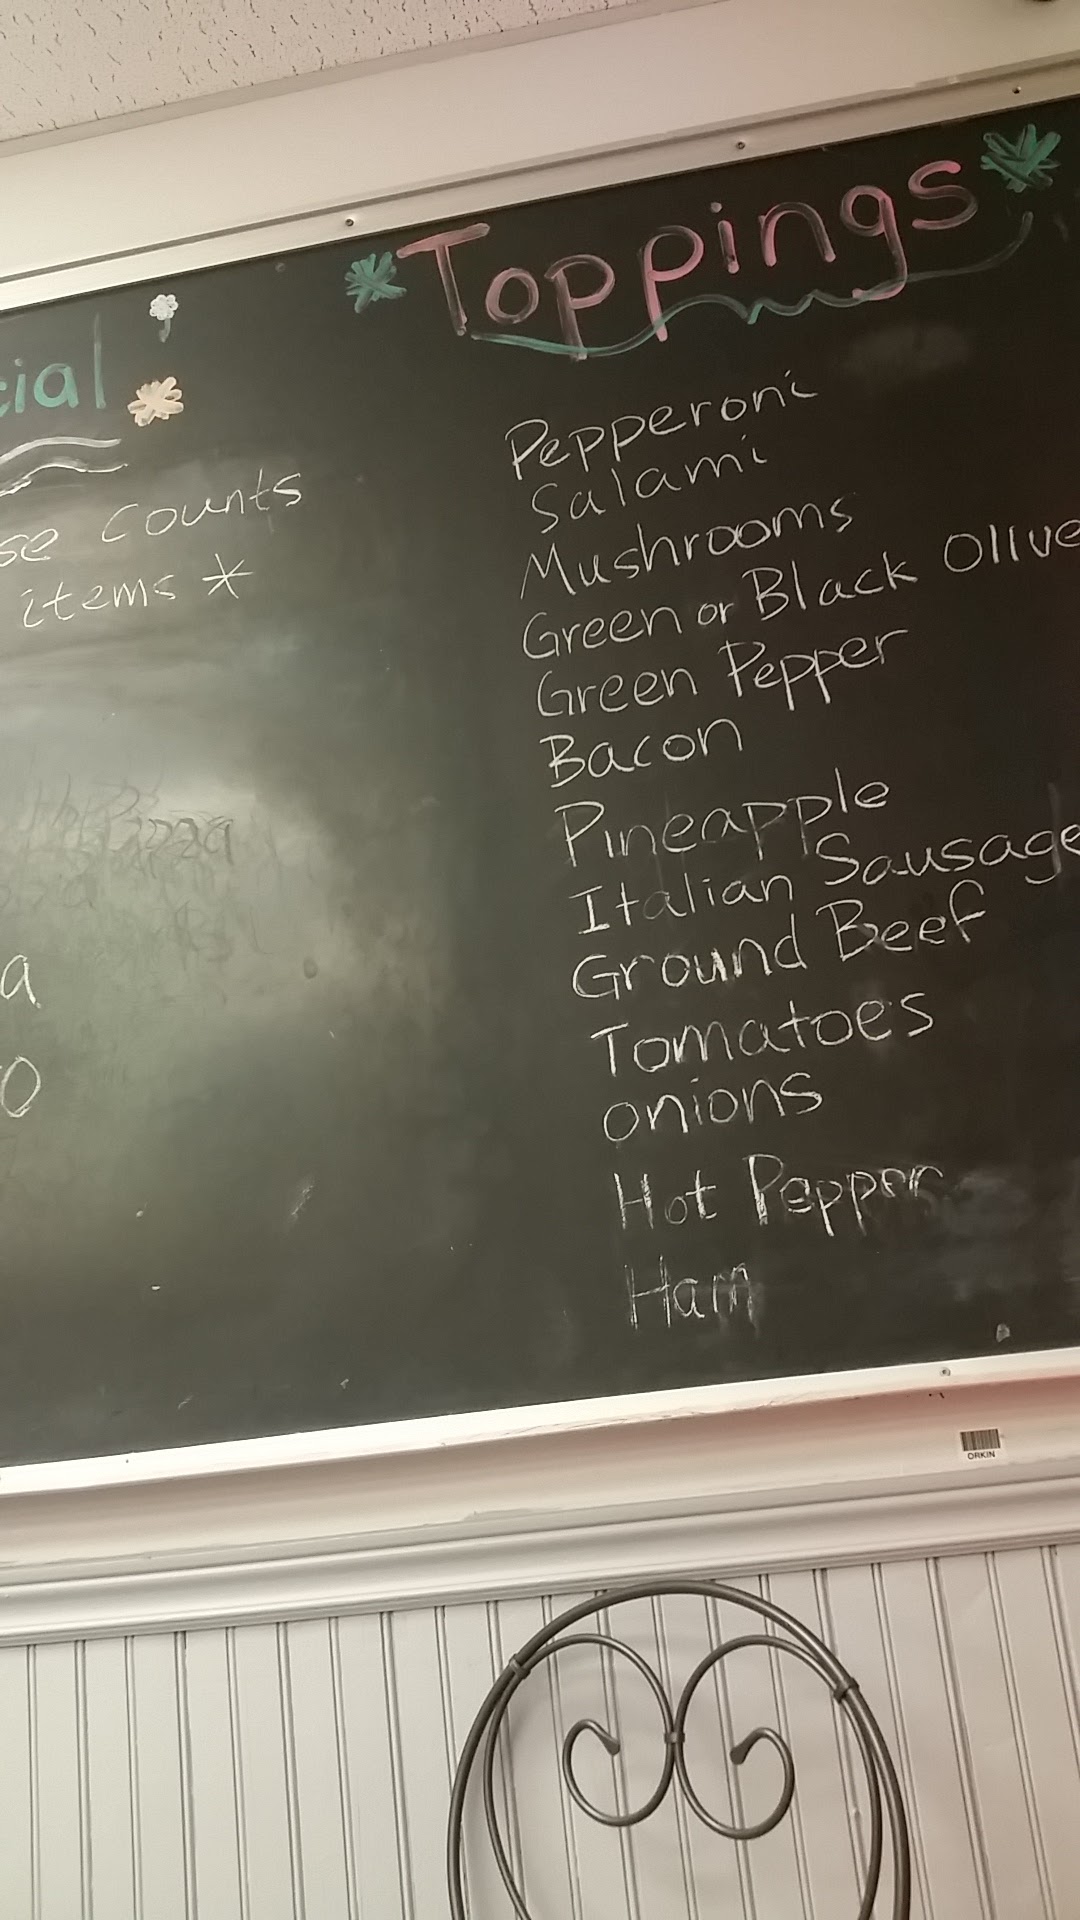 Toppings
cial
se counts
items *
Pepperoni
Salami
Mushrooms
Green or Black Olive
Green Pepper
Bacon
Pineapple
Italian Sausage
Ground Beef
Tomatoes
onions
Hot Pepper
Ham
Pizza
a
0
ORKIN